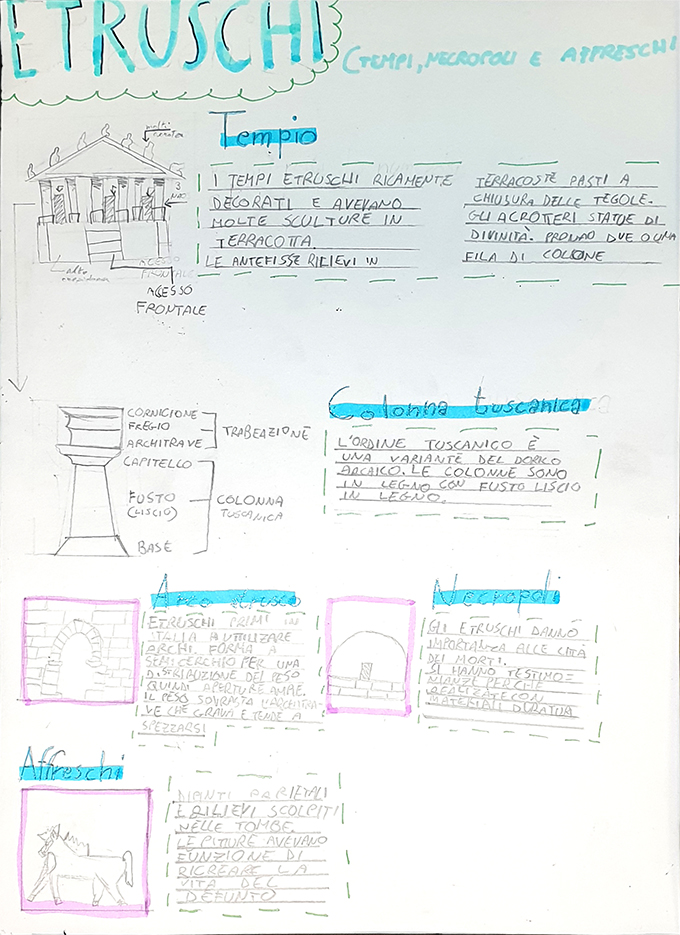 ETRUSCHI
(TEMPI, NECROPOLI E AFFRESCHI
Tempio
I TEMPI ETRUSCHI RICAMENTE
DECORATI E AVEVANO
MOLTE SCULTURE IN
TERRACOTTA.
LE ANTEFISSE RILIEVI IN
TERRACOSTE PASTI A
CHIUSURA DELLE TEGOLE.
GLI ACROTTERI STATUE DI
DIVINITÀ. PRONAO DUE O UNA
FILA DI COLONE
molti
3
alto
ACESSO
FRONTALE
ACESSO
FRONTALE
CORNICIONE
FREGIO
ARCHITRAVE
TRABEAZIONE
CAPITELLO
FUSTO
(LISCIO)
COLONNA
TUSCANICA
BASE
Colonna tuscanica
L'ORDINE TUSCANICO È
UNA VARIANTE DEL DORICO
ARCAICO. LE COLONNE SONO
IN LEGNO CON FUSTO LISCIO
IN LEGNO.
Arco etrusco
ETRUSCHI PRIMI IN
ITALIA A UTILIZARE
ARCHI. FORMA A
SEMICERCHIO PER UNA
DISTRIBUZIONE DEL PESO
QUINDI APERTURE AMPE.
IL PESO SOVRASTA L'ARCHITRA-
VE CHE GRAVA E TENDE A
SPEZZARSI
Necropoli
GLI ETRUSCHI DANNO
IMPORTANZA ALLE CITTÀ
DEI MORTI.
SI HANNO TESTIMO=
NIANZE PERCHÉ
REALIZZATE CON
MATERIALI DURATURI
Affreschi
DIPINTI PARIETALI
E RILIEVI SCOLPITI
NELLE TOMBE.
LE PITTURE AVEVANO
FUNZIONE DI
RICREARE LA
VITA DEL
DEFUNTO